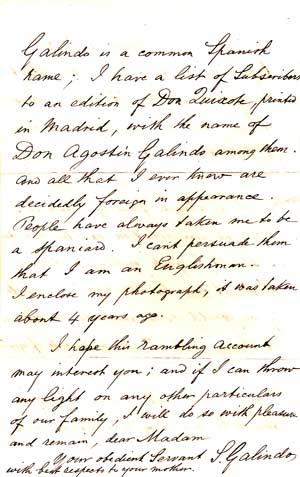 Galindo is a common Spanish
name; I have a list of Subscribers
to an edition of Don Quixote, printed
in Madrid, with the name of
Don Agostin Galindo among them.
and all that I ever knew are
decidedly foreign in appearance.
People have always taken me to be
a Spaniard. I cant persuade them
that I am an Englishman.
I enclose my photograph, it was taken
about 4 years ago.
I hope this rambling account
may interest you; and if I can throw
any light on any other particulars
of our family, I will do so with pleasure
and remain, dear Madam
Your obedient Servant S. Galindo
with best respects to your mother.